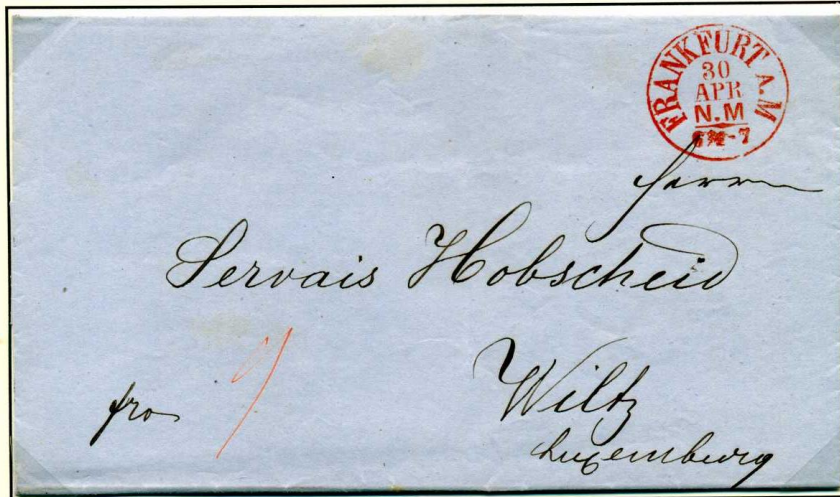 FRANKFURT A.M
30
APR
N.M
6½-7
Herrn
Servais Hobscheid
Wiltz
Luxemburg
fro